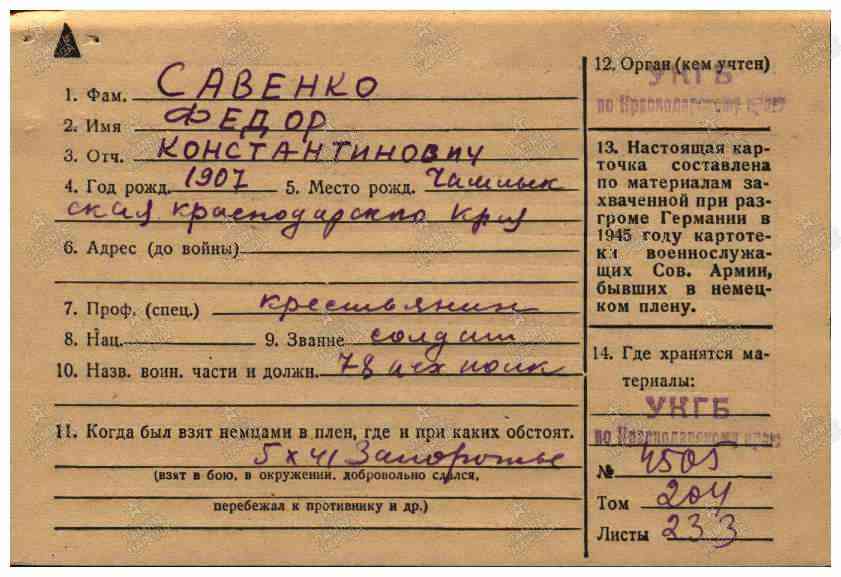 1. Фам. САВЕНКО
2. Имя ФЕДОР
3. Отч. КОНСТАНТИНОВИЧ
4. Год рожд. 1907 5. Место рожд. Чамлык
ская краснодарского края
6. Адрес (до войны)
7. Проф. (спец.) крестьянин
8. Нац. 9. Звание солдат
10. Назв. воин. части и должн. 78 пех полк
11. Когда был взят немцами в плен, где и при каких обстоят.
5 X 41 Запорожье
(взят в бою, в окружении, добровольно сдался,
перебежал к противнику и др.)
12. Орган (кем учтен)
УКГБ
по Краснодарскому краю
13. Настоящая кар-
точка составлена
по материалам за-
хваченной при раз-
громе Германии в
1945 году картоте-
ки военнослужа-
щих Сов. Армии,
бывших в немец-
ком плену.
14. Где хранятся ма-
териалы:
УКГБ
по Краснодарскому краю
№ 4505
Том 204
Листы 233